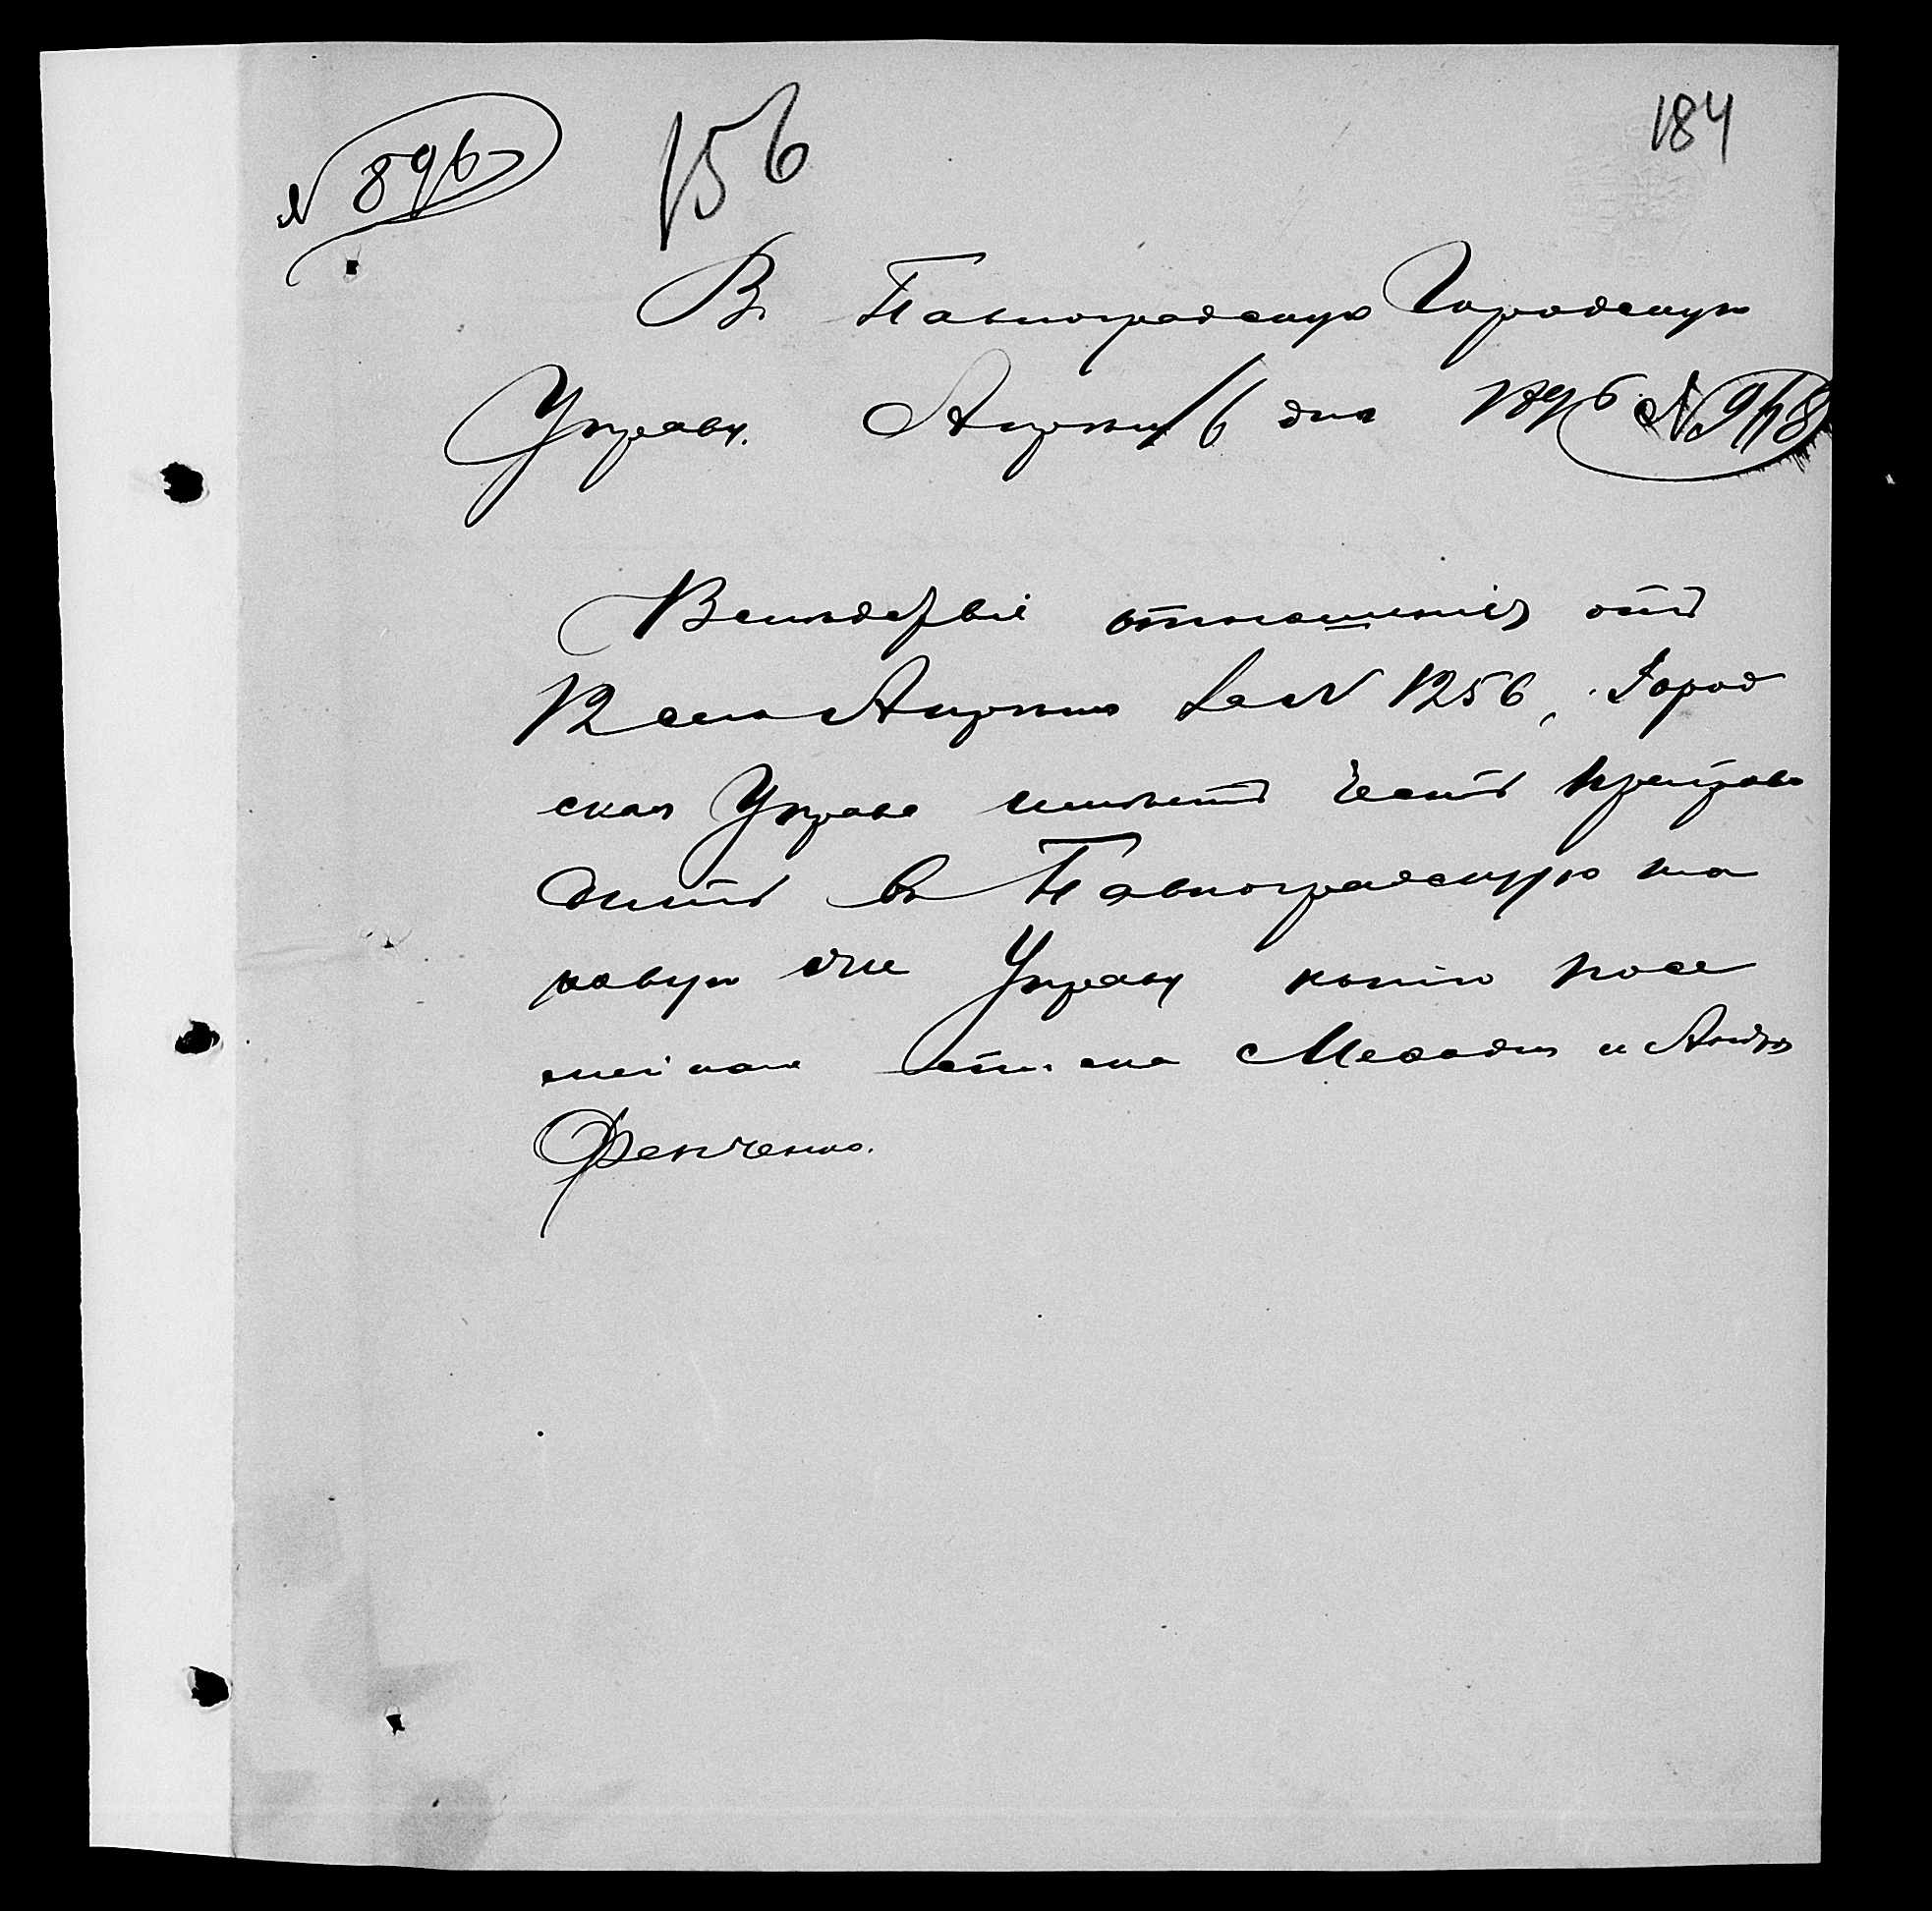 N 896
156
184
В Павлоградскую Городскую
Управу. Апреля 16 дня 1896 N 948
Вследствіе отношенія отъ
12 сего Апреля за N 1256, Город
ская Управа имѣетъ честь препрово
дить въ Павлоградскую та
ковую же Управу копію посе
мейнаго списка Мефодія и Андрея
Фенченко.